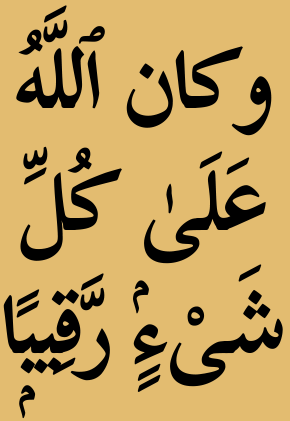 وكان ٱللَّهُ
عَلَىٰ كُلِّ
شَىْءٍۢ رَّقِيبًۭا